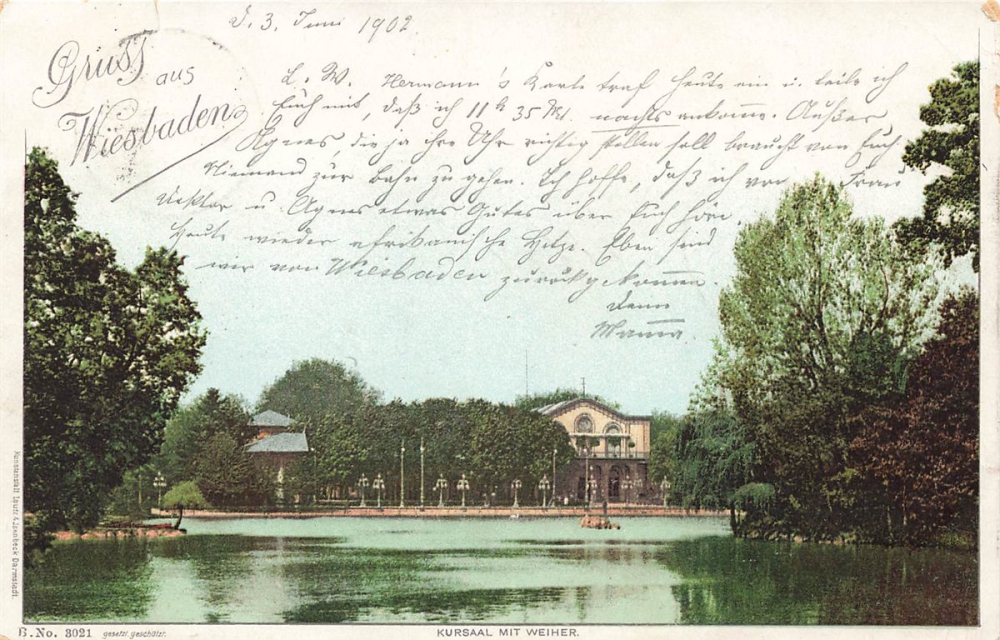 D. 3. Juni 1902.
Gruss
aus
Wiesbaden
L. W. Hermann's Karte traf heute ein u. teile ich
Euch mit, daß ich 11 h 35 M. nachts ankomme. Außer
Agnes, die ja ihre Uhr richtig stellen soll braucht von Euch
Niemand zur Bahn zu gehen. Ich hoffe, daß ich von Frau
Viktor u. Agnes etwas Gutes über Euch höre
Heute wieder afrikanische Hitze. Eben sind
wir von Wiesbaden zurückgekommen.
Mama
Kunstanstalt Lautz & Isenbeck Darmstadt.
B. No. 3021 gesetzl. geschützt.
KURSAAL MIT WEIHER.